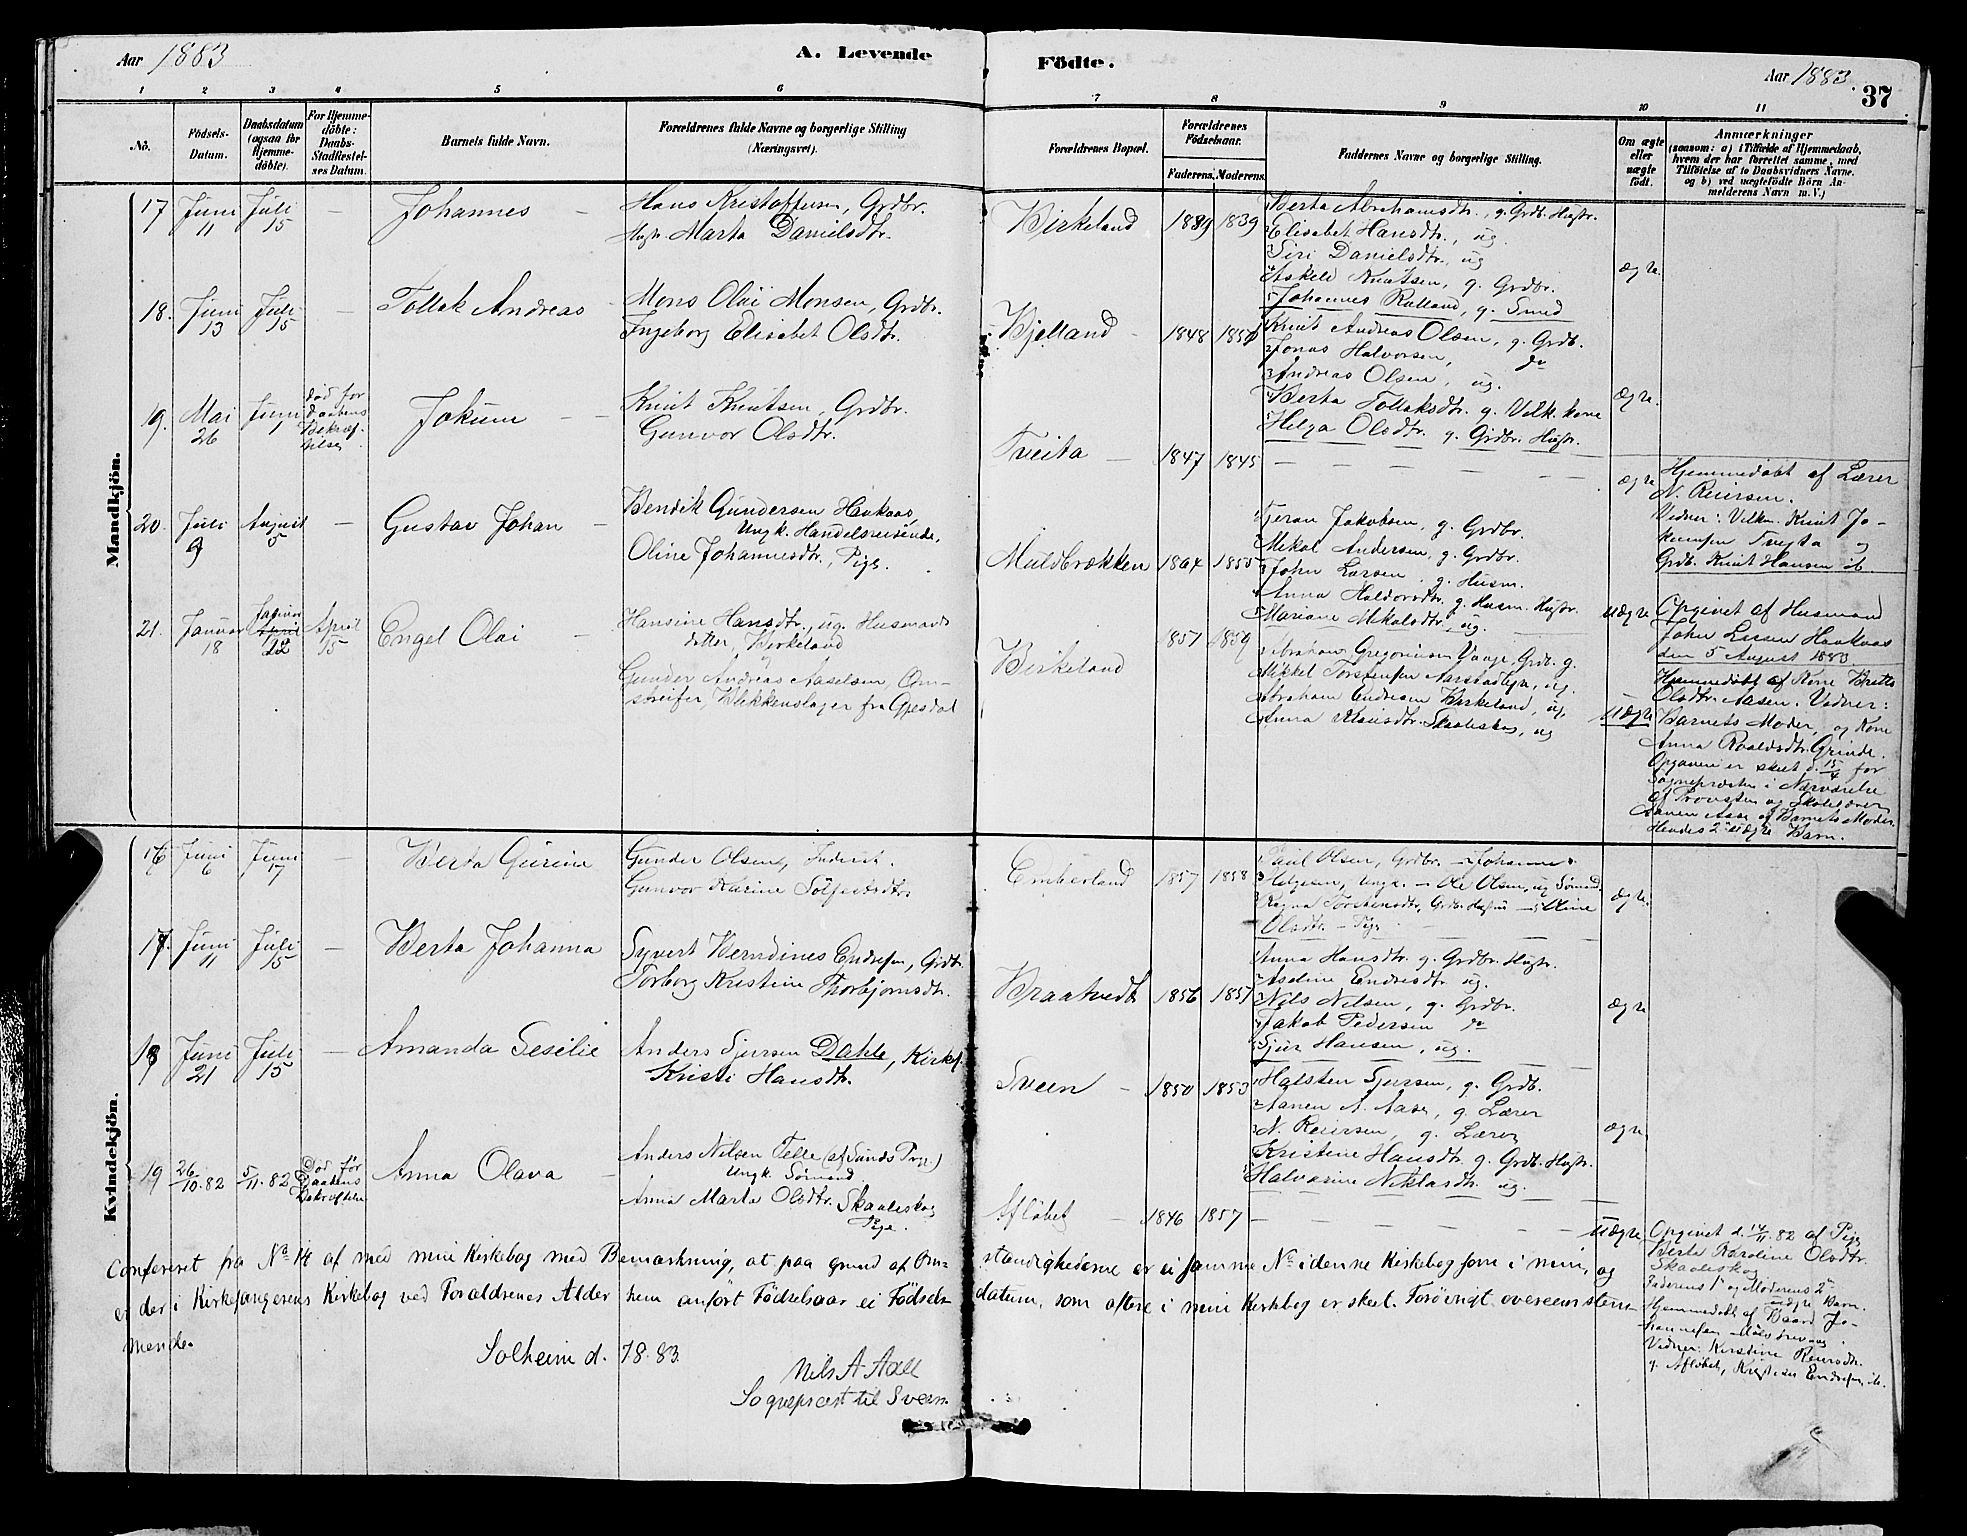 Aar 1883
A. Levende
Födte.
Aar 1883.
37
1 2 3 4 5 6 7 8 9 10 11
No.
Födsels-
Datum.
Daabsdatum
(ogsaa for
Hjemme-
döbte).
For Hjemme-
döbte:
Daabs-
Stadfæstel-
ses Datum.
Barnets fulde Navn.
Forældrenes fulde Navne og borgerlige Stilling
(Næringsvei).
Forældrenes Bopæl.
Forældrenes
Födselsaar.
Faderens. Moderens.
Faddernes Navne og borgerlige Stilling.
Om ægte
eller
uægte
födt.
Anmærkninger
(saasom: a) i Tilfælde af Hjemmedaab,
hvem der har forrettet samme, med
Tilföielse af to Daabsvidners Navne,
og b) ved uægtefödte Börn An-
melderens Navn m. V.)
Mandkjön.
17 Juni 11 Juli 15 — Johannes —
Hans Kristoffersen, Grdbr.
Hstr. Marta Danielsdtr.
Birkeland 1839 1839
Berta Abrahamsdtr., g. Grdb. Hustr.
Elisabet Hansdtr., ug.
Siri Danielsdtr., ug
Askeld Knutsen, g. Grdbr.
Johannes Rulland, g. Smed
ægte.
18. Juni 13 Juli 15 — Tollak Andreas
Mons Olai Monsen, Grdbr.
Ingeborg Elisabet Olsdtr.
Kjelland 1848
Knut Andreas Olsen, g. Grdb.
Jonas Halvorsen, do
Andreas Olsen, ug.
Berta Tollaksdtr. g. Velk. kone
Helga Olsdtr. g. Grdbr. Hustr.
ægte.
19. Mai 26 Juni 1 död for Daabens Bekræf-telse Jokum
Knut Knutsen, Grdbr.
Gunvor Olsdtr.
Tveita 1847 1845
ægte
Hjemmedöbt af Lærer
N. Reiersen.
Vidner: Velkm. Knut Jo-
kumsen Tveita og
Grdb. Knut Hansen ib
20. Juli 9 August 5 — Gustav Johan
Bendik Gundersen Haukaas,
Ungk. Handelsreisende,
Oline Johannesdtr., Pige.
Muldbrækken 1864 1855
Jeran Jakobsen, g. Grdbr.
Mikal Andersen, g. Grdbr.
John Larsen, g. Husm.
Anna Haldorsdtr. g. Husm. Hustr.
Mariane Mikalsdtr. ug.
uægte
Opgivet af Husmand
John Larsen Haukaas
den 5 August 1883.
21. Januar 18 Januar 22 April 15 Engel Olai
Hansine Hansdtr., ug. Husmands
datter, Birkeland
Gunder Andreas Aselsen, Om-
streifer, Blikkenslager fra Gjesdal
Birkeland 1857 1859
Abraham Gregoriusen Vaage, Grdb. g.
Mikkel Torstensen, ug.
Abraham Endresen Birkeland, ug.
Anna Skaaleskog, ug
uægte
Hjemmedöbt af Kone Britta
Olsdtr. Aasen. Vidner:
Barnets Moder, og Kone
Anna Roaldsdtr. Grinde.
Opgaven er skeet d. 15/4 for
Sognepræsten i Nærværelse
af Provsten og Skolelærer
Aanen Aase af Barnets Moder.
Hendes 2det uægte Barn.
Kvindekjön.
16 Juni 6 Juni 17 — Berta Gurine
Gunder Olsen, Inderst.
Gunvor Karine Sölfestsdtr.
Emberland 1857 1858
Paul Olsen, Grdbr. — Johannes
Helgesen, Ungk. — Ole Olsen, ug Sömand.
Ragna Torstensdtr, Grdb. Hustru — Oline
Olsdtr. — Pige
ægte.
17. Juni 11 Juli 15 — Berta Johanna
Syvert Berndines Endresen, Grdbr.
Torborg Kristine Thorbjörnsdtr.
Braatvedt 1856 1857
Anna Hansdtr. g. Grdbr. Hustr.
Aseline Endresdtr ug.
Nils Nilsen, g. Grdbr.
Jakob Pedersen do
Sjur Hansen, ug.
ægte
18 Juni 21 Juli 15 — Amanda Sesilie
Anders Sjursen Dahle, Kirkes.
Kristi Hansdtr.
Sveen — 1850 1853
Halsten Sjursen, g. Grdb.
Aanen A. Aase, g. Lærer
N. Reiersen, g. Lærer
Kristine Hansdtr g. Grdb. Hustr.
Halvarine Niklasdtr. ug.
ægte
19 26/10.82 5/11.82 Död för Daabens Bekræftelse Anna Olava —
Anders Nilsen Telle (af Sunds Prgj.)
Ungk. Sömand
Anna Marta Olsdtr. Skaaleskog
Pige.
Aflöbet — 1846 1857
uægte
Opgivet d. 14/11 82 af Pige
Berta Karoline Olsdtr.
Skaaleskog
Faderens 1ste og Moderens 2det
uægte Barn.
Hjemmedöbt af Baard Jo-
hannesen
Vidner: Kirstine Reiersdtr.
g. Aflöbet, Kristian Endresen, ib.
Confereret fra No 14 af med min Kirkebog med Bemærkning, at paa grund af Om-standighederne er ei samme No i denne Kirkebog som i min, og
er der i Kirkesangerens Kirkebog ved Forældrenes Alder kun anfört Födselsaar ei Födsels-datum, som oftere i min Kirkebog er skeet. Forövrigt overeenstem-
mende.
Solheim d. 7 8. 83.
Nils A Aall
Sogneprest til Sveen.